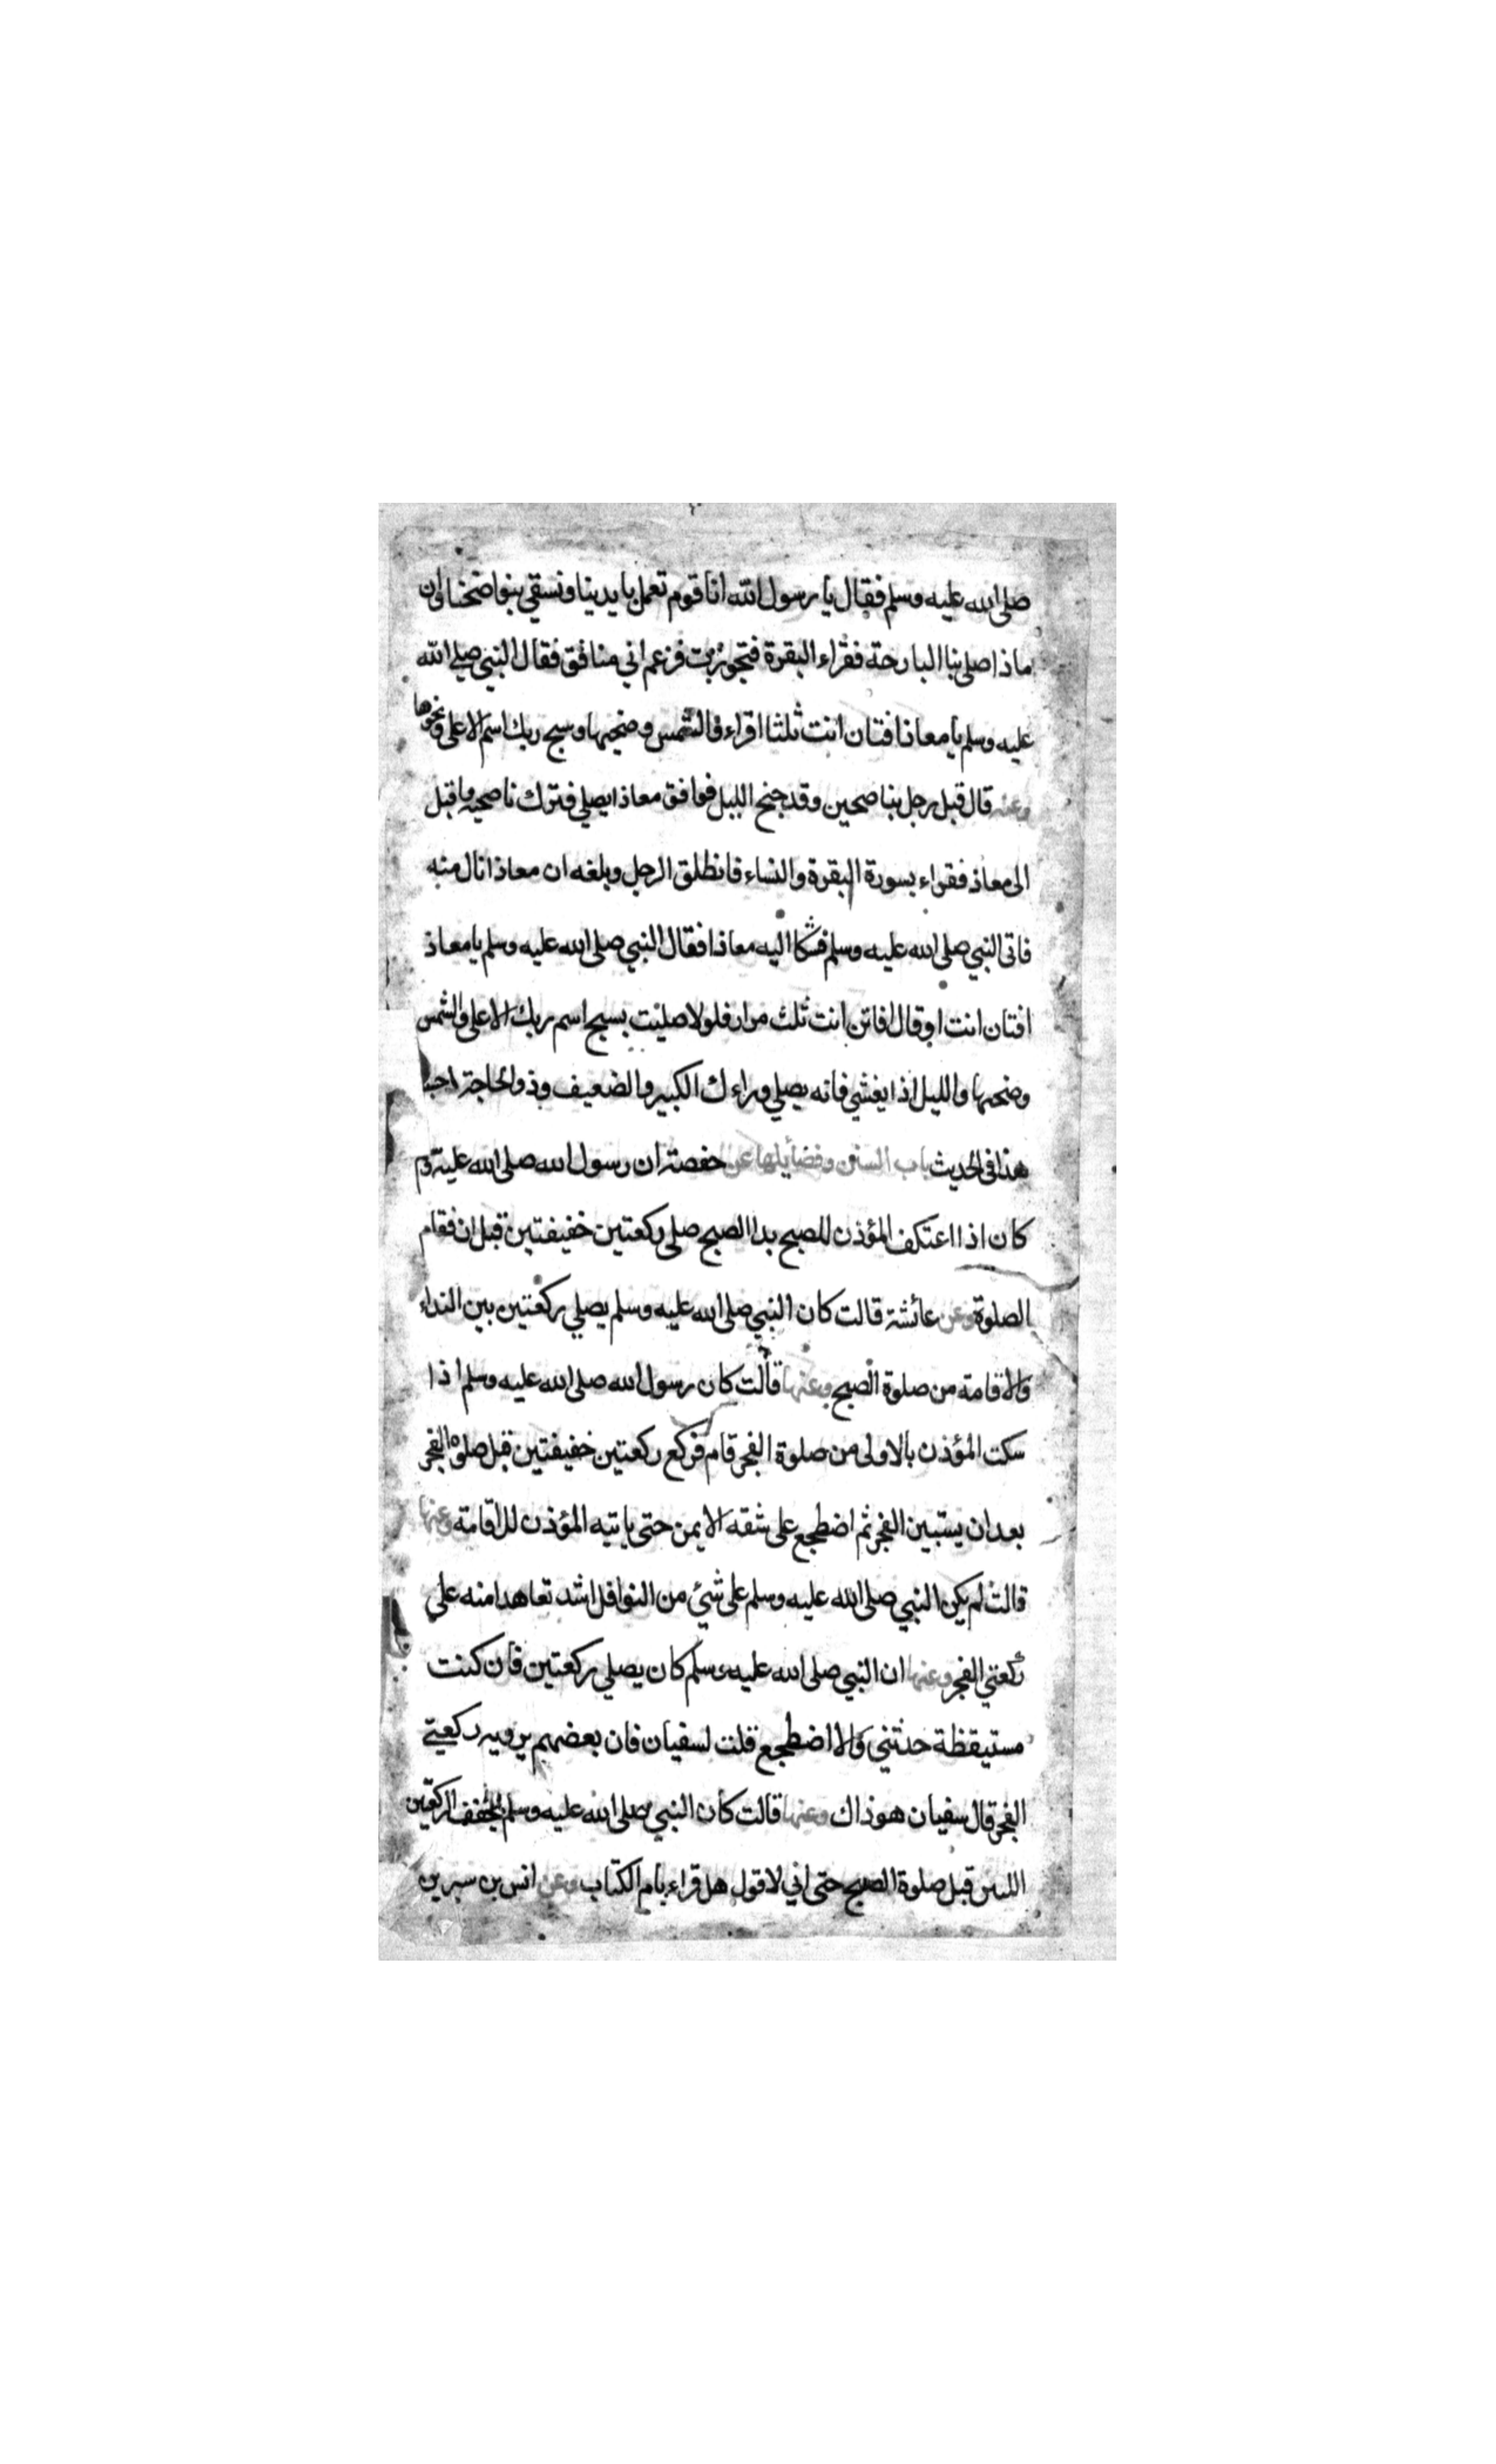 صلى الله عليه وسلم فقال يا رسول الله انا قوم نعمل بايدينا ونسقي بنواضحنا وان
ماذا صلى بنا البارحة فقراء البقرة فتجوزت فزعم اني منافق فقال النبي صلى الله
عليه وسلم يا معاذ افتان انت ثلثا اقراء والشمس وضحيها وسبح ربك اسم الاعلى ونحوها
وعنه قال قبل رجل بناضحين وقد جنح الليل فوافق معاذا يصلي فترك ناضحيه واقبل
الى معاذ فقراء بسورة البقرة والنساء فانطلق الرجل وبلغه ان معاذا نال منه
فاتى النبي صلى الله عليه وسلم فشكا اليه معاذا فقال النبي صلى الله عليه وسلم يا معاذ
افتان انت او قال افاتن انت ثلث مرار فلولا صليت بسبح اسم ربك الاعلى والشمس
وضحيها والليل اذا يغشي فانه يصلي وراءك الكبير والضعيف وذو الحاجة احب
هذا في الحديث باب السنن وفضايلها عن حفصة ان رسول الله صلى الله عليه وم
كان اذا اعتكف المؤذن للصبح بدا الصبح صلى ركعتين خفيفتين قبل ان فقام
الصلوة وعن عائشة قالت كان النبي صلى الله عليه وسلم يصلي ركعتين بين النداء
والاقامة من صلوة الصبح وعنها قالت كان رسول الله صلى الله عليه وسلم اذا
سكت المؤذن بالاولى من صلوة الفجر قام فركع ركعتين خفيفتين قبل صلوة الفجر
بعد ان يستبين الفجر ثم اضطجع على شقه الايمن حتى ياتيه المؤذن للاقامة وعنها
قالت لم يكن النبي صلى الله عليه وسلم على شيئ من النوافل اشد تعاهدا منه على
ركعتي الفجر وعنها ان النبي صلى الله عليه وسلم كان يصلي ركعتين فان كنت
مستيقظة حدثني والا اضطجع قلت لسفيان فان بعضهم يرويه ركعتي
الفجر قال سفيان هو ذاك وعنها قالت كان النبي صلى الله عليه وسلم يخفف الركعتين
اللتين قبل صلوة الصبح حتى اني لاقول هل قراء بام الكتاب وعن انس بن سيرين